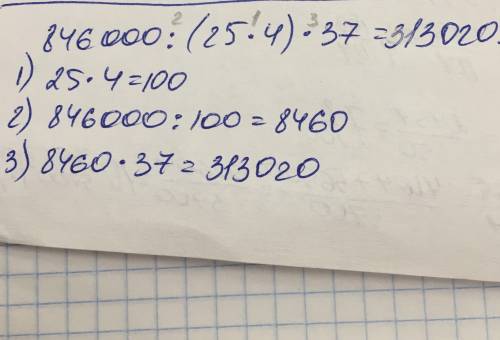 846000 : (25 · 4) · 37 = 313020.
1) 25 · 4 = 100
2) 846000 : 100 = 8460
3) 8460 · 37 = 313020